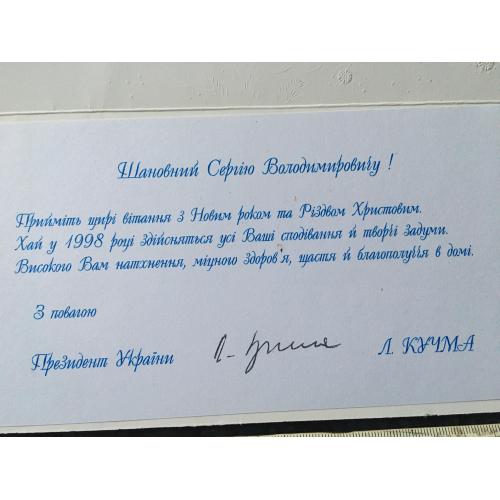 Шановний Сергію Володимировичу !
Прийміть щирі вітання з Новим роком та Різдвом Христовим.
Хай у 1998 році здійсняться усі Ваші сподівання й творчі задуми.
Високого Вам натхнення, міцного здоров'я, щастя й благополуччя в домі.
З повагою
Президент України Л. КУЧМА